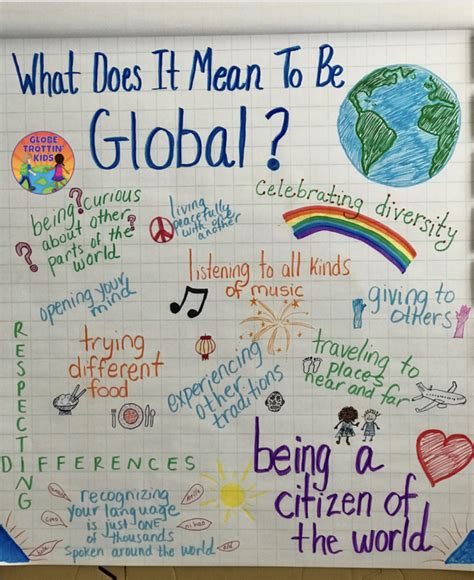 What Does It Mean To Be
Global?
GLOBE
TROTTIN'
KIDS
being curious
about other
parts of the
world
living
peacefully
with one
another
Celebrating diversity
opening your
mind
listening to all kinds
of music
giving to
others
trying
different
food
experiencing
other
traditions
traveling to
places
near and far
RESPECTING
DIFFERENCES
being a
citizen of
the world
recognizing
your language
is just ONE
of thousands
spoken around the world
hello
ciao
ni hao
hola